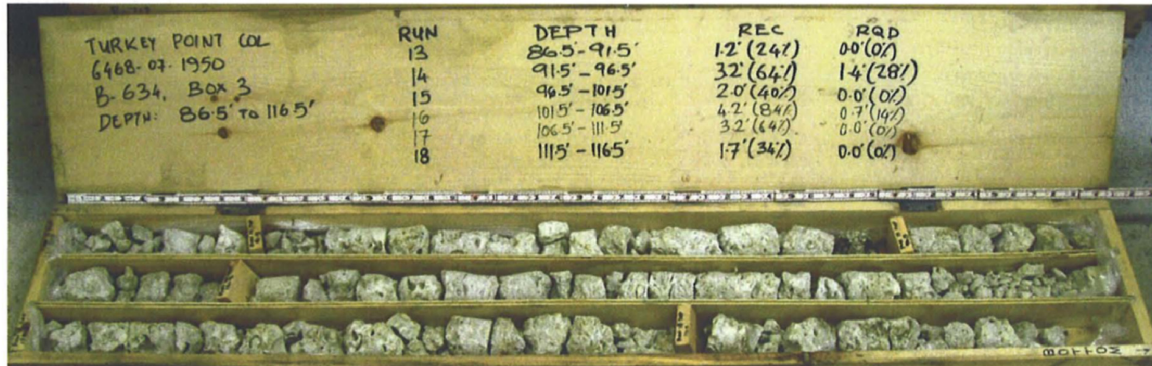 TURKEY POINT COL
6468-07-1950
B-634, BOX 3
DEPTH: 86.5' TO 116.5'
RUN DEPTH REC RQD
13 86.5'-91.5' 1.2' (24%) 0.0' (0%)
14 91.5'-96.5' 3.2' (64%) 1.4' (28%)
15 96.5'-101.5' 2.0' (40%) 0.0' (0%)
16 101.5'-106.5' 4.2' (84%) 0.7' (14%)
17 106.5'-111.5' 3.2' (64%) 0.0' (0%)
18 111.5'-116.5' 1.7' (34%) 0.0' (0%)
BOTTOM